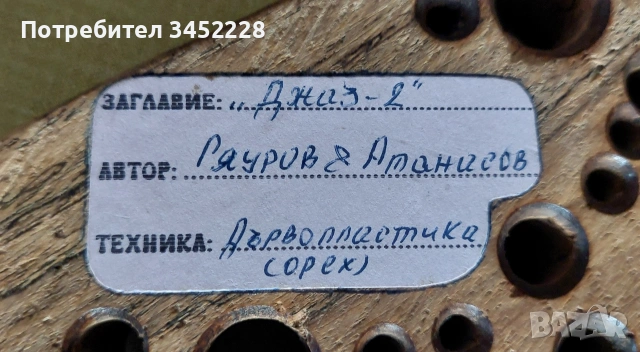 Потребител 3452228
ЗАГЛАВИЕ: „Джаз-2"
АВТОР: Гяуров & Атанасов
ТЕХНИКА: Дърво­пластика
(орех)
BAZAR